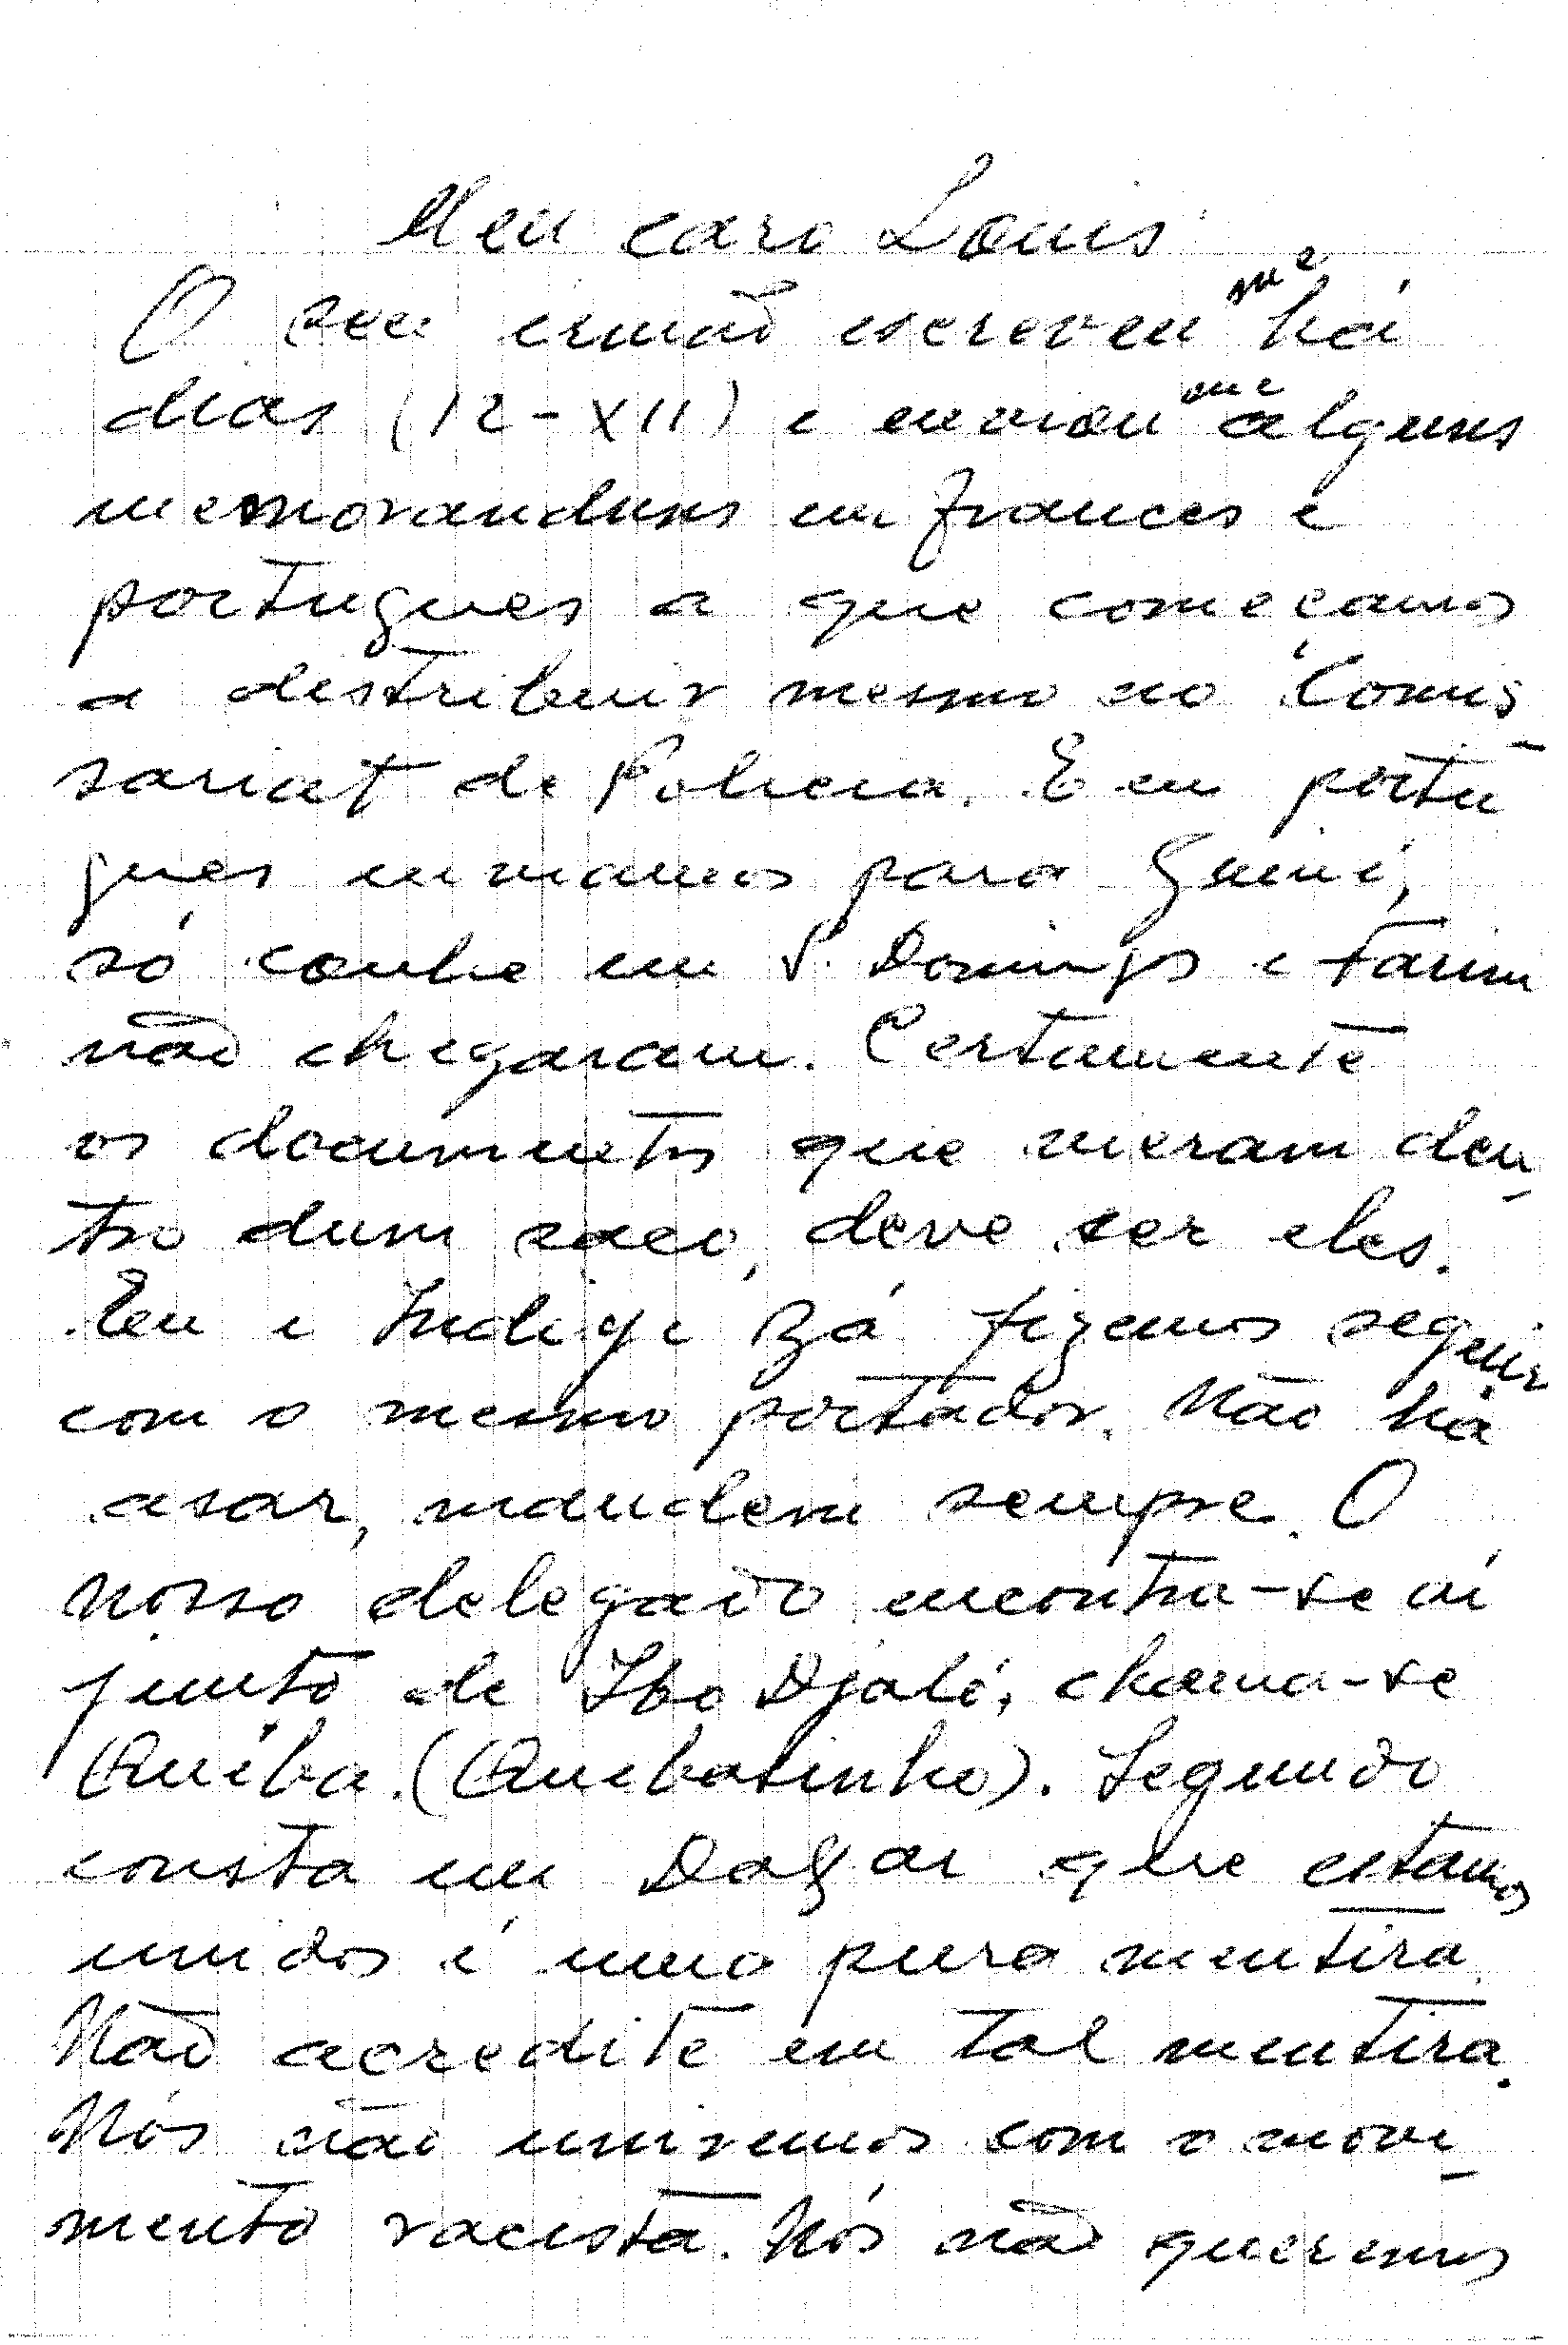 Meu caro Louis
O seu irmão escreveu me há
dias (12-XII) e enviou me alguns
memoranduns em frances e
portugues a que começamos
a distribuir mesmo no Comis
sariat de Policia. E em portu-
gues enviamos para Guiné,
só coube em S. Domingos e Farim
não chegaram. Certamente
os documentos que vieram den-
tro dum saco, deve ser eles.
Eu e Indige Bá fizemos seguir
com o mesmo portador. Não há
asar, mandem sempre. O
nosso delegado encontra-se aí
junto de Ibo Djaló, chama-se
Quêba. (Quebasinho). Segundo
consta em Dagar que estamos
unidos é uma pura mentira.
Não acredite em tal mentira.
Nós não uniremos com o movi-
mento racista. Nós não queremos